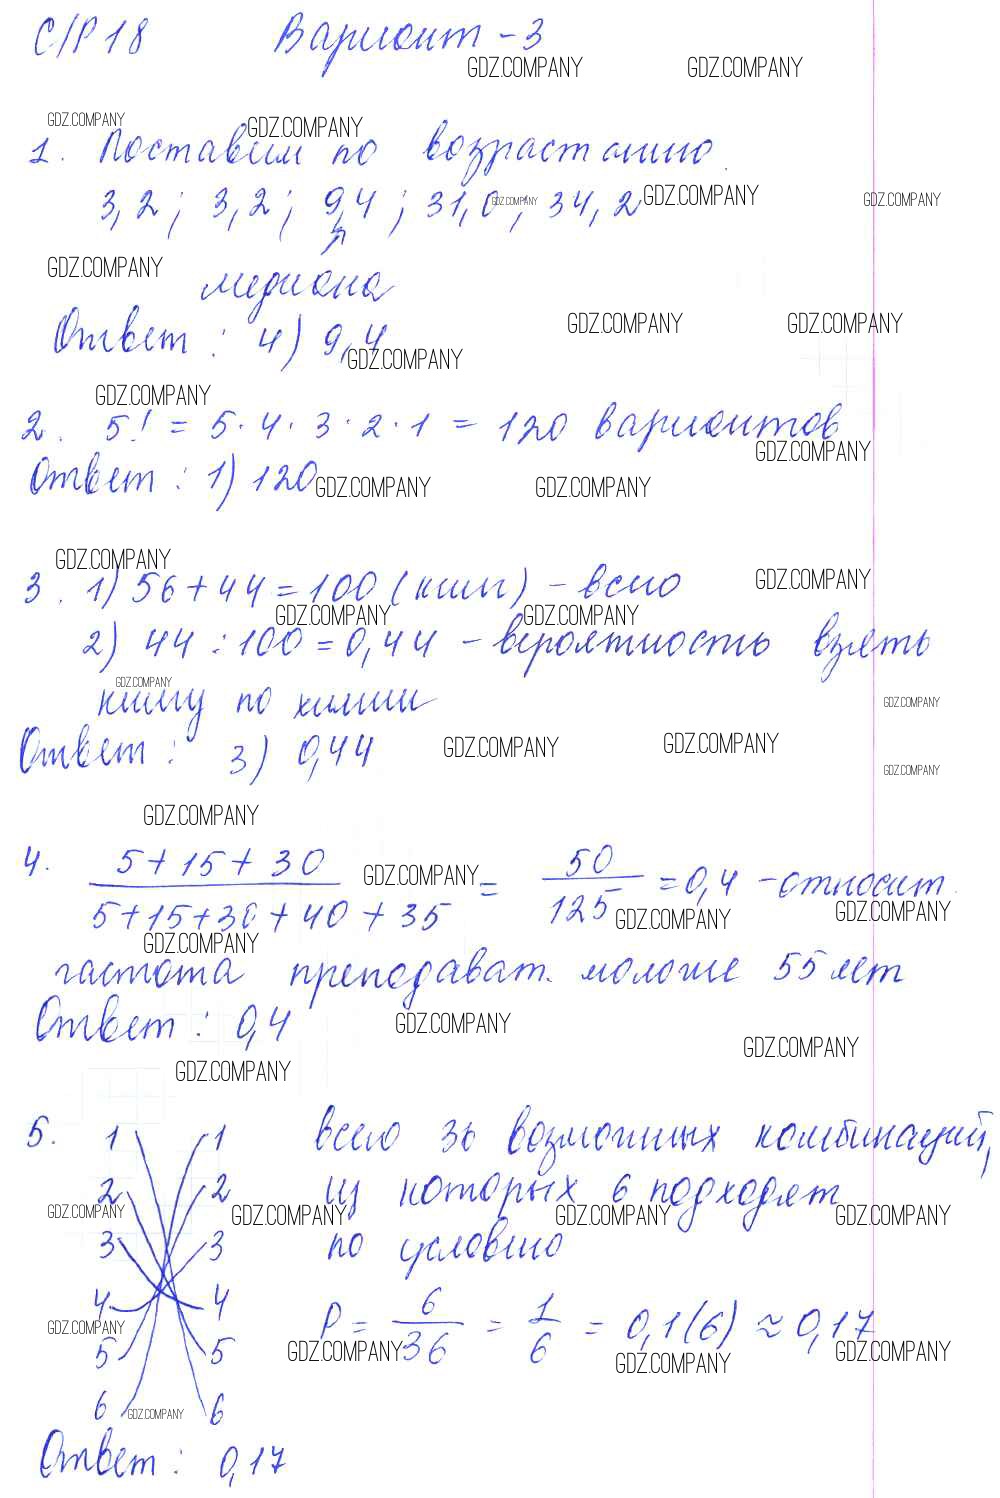 С/Р 18 Вариант - 3
GDZ.COMPANY GDZ.COMPANY
GDZ.COMPANY GDZ.COMPANY
1. Поставим по возрастанию
3,2 ; 3,2 ; 9,4 ; 31,0 ; 34,2
GDZ.COMPANY GDZ.COMPANY GDZ.COMPANY
GDZ.COMPANY
медиана
Ответ : 4) 9,4
GDZ.COMPANY GDZ.COMPANY
GDZ.COMPANY
GDZ.COMPANY
2. 5! = 5 · 4 · 3 · 2 · 1 = 120 вариантов
GDZ.COMPANY
Ответ : 1) 120
GDZ.COMPANY GDZ.COMPANY
GDZ.COMPANY
3. 1) 56 + 44 = 100 (книг) - всего
GDZ.COMPANY
GDZ.COMPANY GDZ.COMPANY
2) 44 : 100 = 0,44 - вероятность взять
GDZ.COMPANY
книгу по химии
GDZ.COMPANY
Ответ : 3) 0,44
GDZ.COMPANY GDZ.COMPANY
GDZ.COMPANY
GDZ.COMPANY
4. 5 + 15 + 30 / 5 + 15 + 30 + 40 + 35 = 50 / 125 = 0,4 - относит.
GDZ.COMPANY
GDZ.COMPANY GDZ.COMPANY
GDZ.COMPANY
частота преподават. моложе 55 лет
Ответ : 0,4
GDZ.COMPANY
GDZ.COMPANY
GDZ.COMPANY
5. 1 1 всего 36 возможных комбинаций,
2 2 из которых 6 подходят
GDZ.COMPANY GDZ.COMPANY GDZ.COMPANY GDZ.COMPANY
3 3 по условию
4 4
GDZ.COMPANY
5 5 P = 6 / 36 = 1 / 6 = 0,1(6) ≈ 0,17
GDZ.COMPANY GDZ.COMPANY GDZ.COMPANY
6 6
GDZ.COMPANY
Ответ : 0,17